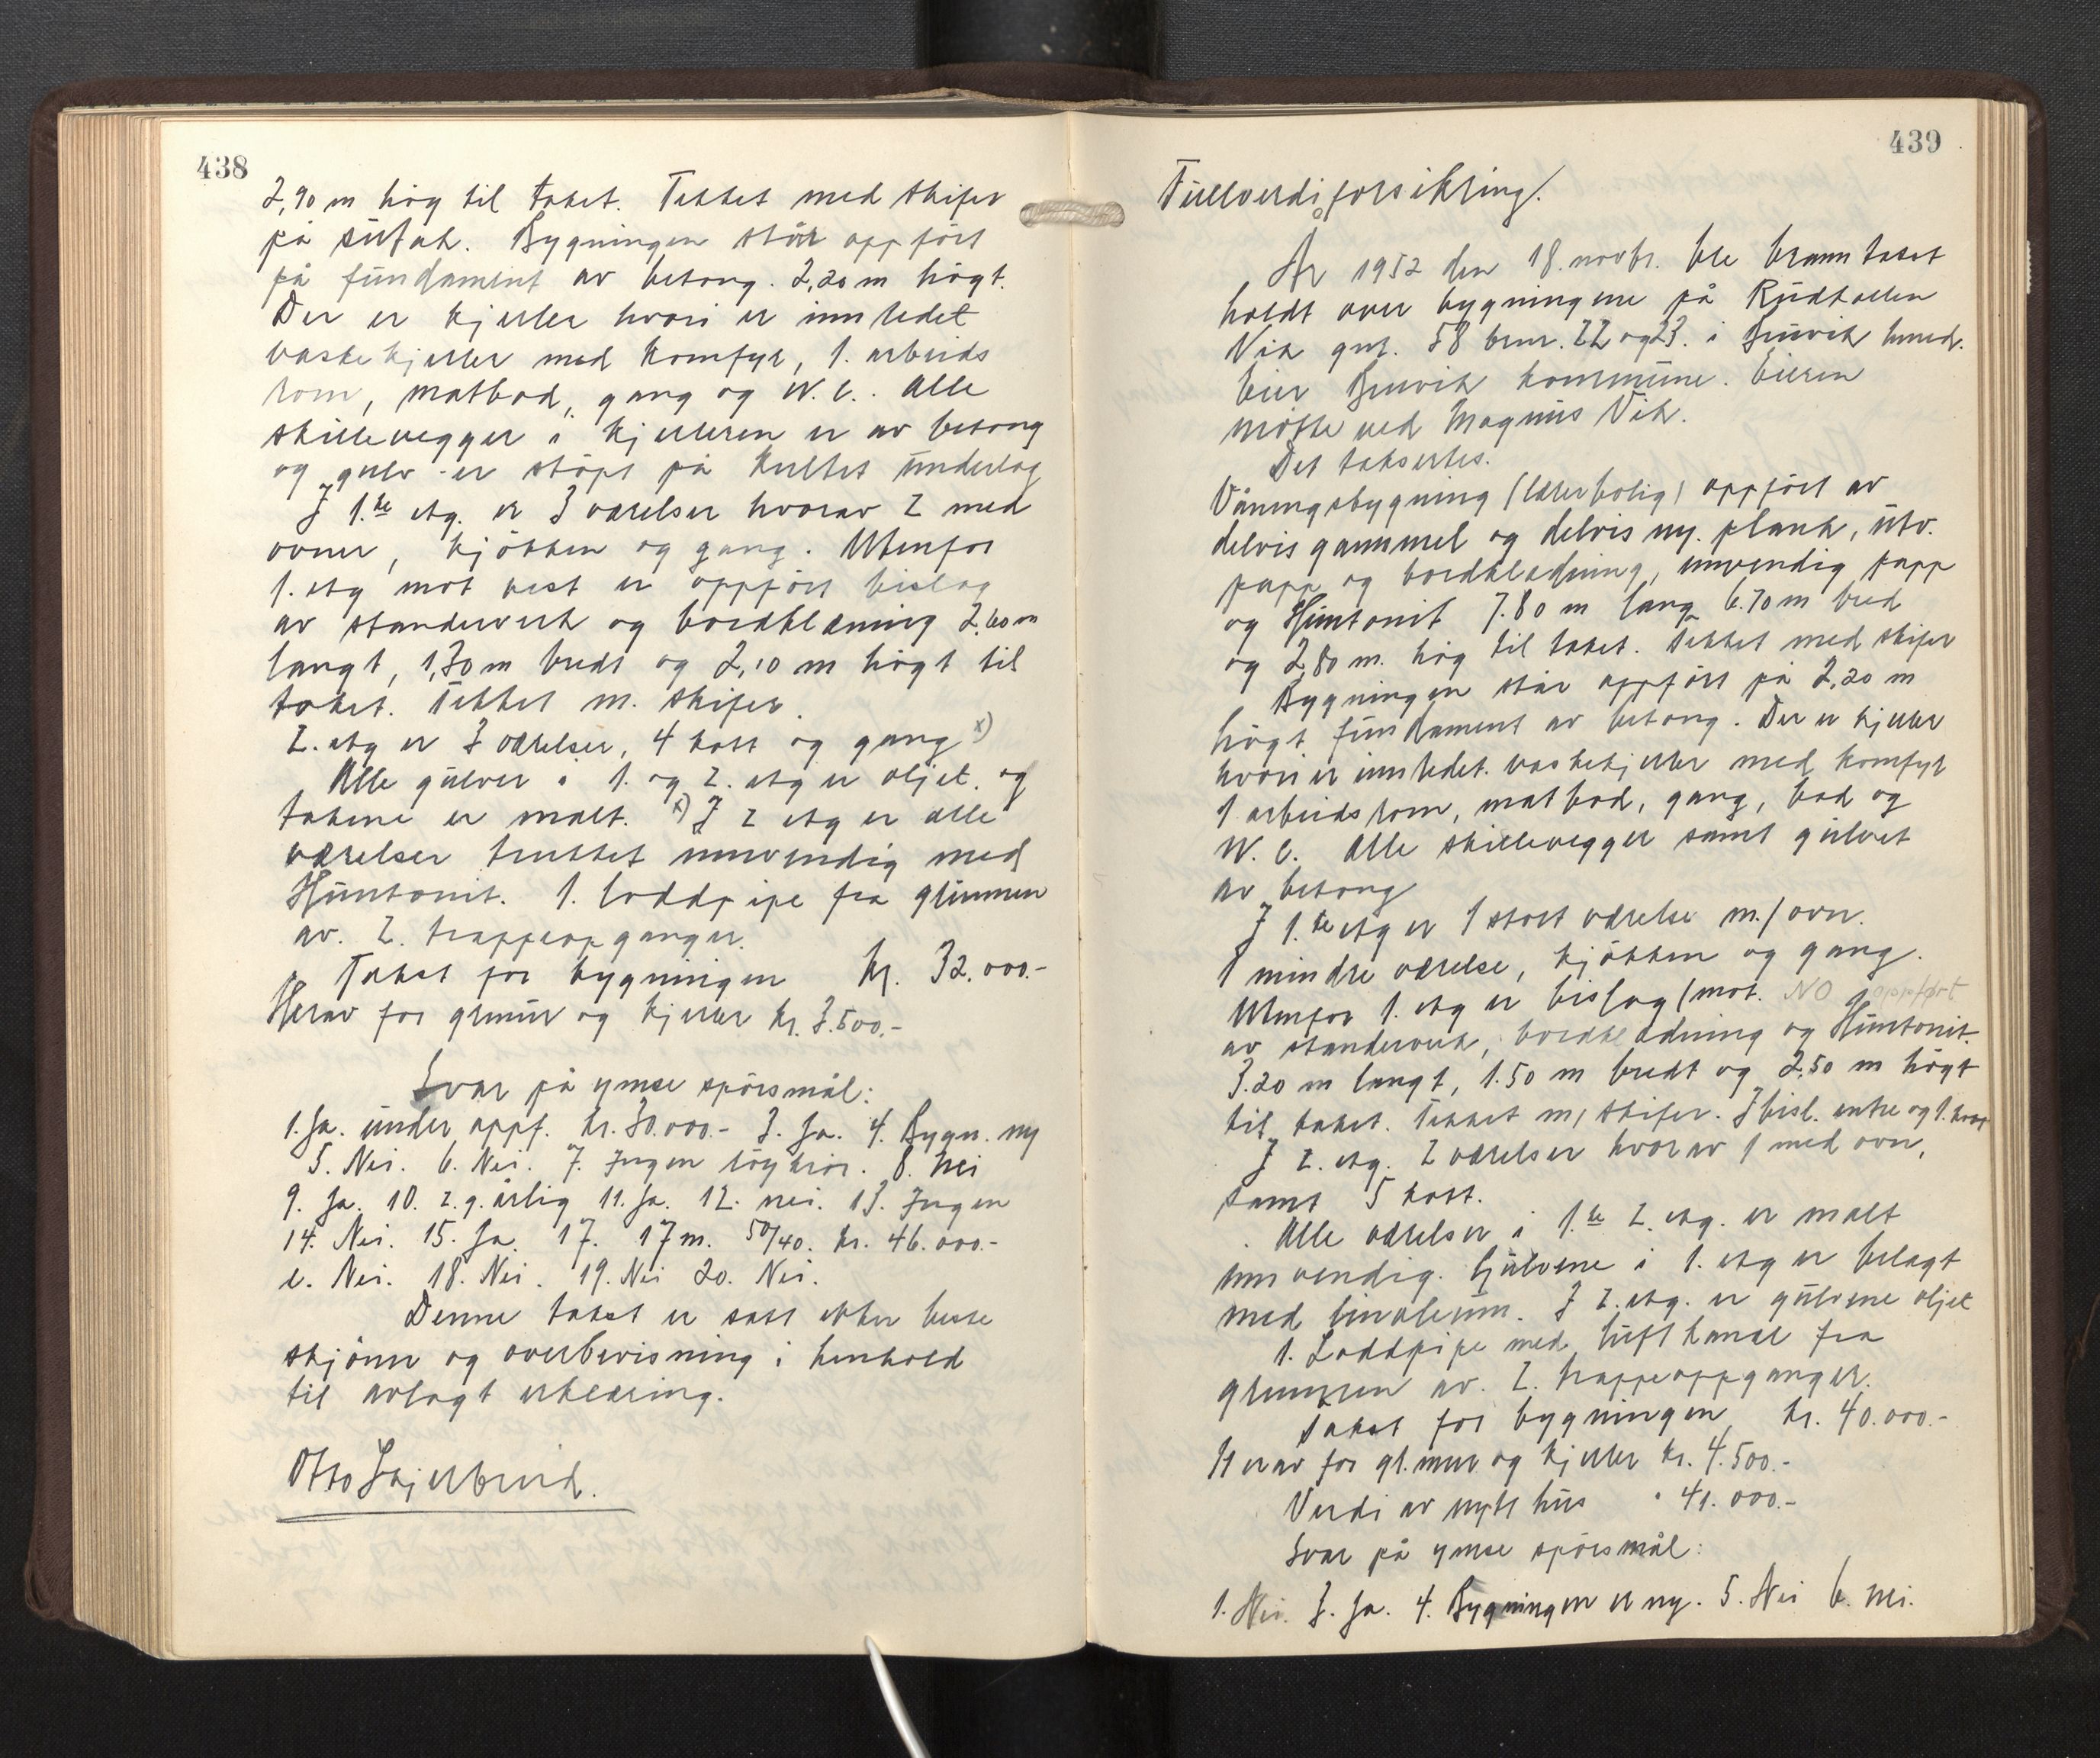 438
2,90 m høg til taket. Tekket med skifer
på sutak. Bygningen står oppført
på fundament av betong. 2,20 m høgt.
Der er kjeller hvori er innredet
vaskekjeller med komfyr, 1. arbeids
rom, matbod, gang og W.C. Alle
skillevegger i kjelleren er av betong
og gulv er støpt på kultet underlag
I 1.ste etg. er 3 værelser hvorav 2 med
ovner, kjøkken og gang. Utenfor
1. etg mot vest er oppført bislag
av standerverk og bordklædning 2,60 m
langt, 1,30 m bredt og 2,10 m høgt til
taket. Tekket m. skifer.
2. etg er 3 værelser, 4 kott og gang x)
Alle gulver i 1. og 2. etg er oljet og
takene er malt. x) I 2 etg er alle
værelser trukket innvendig med
Huntonit. 1. loddpipe fra grunnen
av. 2. trappeopganger.
Takst for bygningen kr. 32.000.-
Herav for grmur og kjeller kr. 3.500.-
Svar på ymse spørsmål:
1. Ja. under oppf. kr. 30.000.- 3. Ja. 4. Bygn. ny
5. Nei. 6. Nei. 7. Ingen røykrør. 8. Nei
9. Ja. 10. 2.g. årlig 11. Ja. 12. nei. 13. Ingen
14. Nei. 15. Ja. 17. 17 m. 50/40. kr. 46.000.-
e. Nei. 18. Nei. 19. Nei 20. Nei.
Denne takst er satt etter beste
skjønn og overbevisning i henhold
til avlagt erklæring.
Otto
439
Fullverdiforsikring.
År 1952 den 18. novbr. ble branntakst
holdt over bygningene på
Vik gnr. 58 bnr. 22 og 23. i Bruvik herred.
Eier Bruvik kommune. Eieren
møtte ved Magnus Vik.
Det taksertes.
Våningsbygning (lærerbolig) oppført av
delvis gammel og delvis ny. plank, utv.
papp og bordklædning, innvendig papp
og Huntonit 7.80 m lang 6.70 m bred
og 2,80 m. høg til taket. Tekket med skifer
Bygningen står oppført på 2,20 m
høgt fundament av betong. Der er kjeller
hvori er innredet vaskekjeller med komfyr
1 arbeidsrom, matbod, gang, bad og
W.C. Alle skillevegger samt gulvet
av betong
I 1.ste etg er 1 stort værelse m./ovn.
1 mindre værelse, kjøkken og gang.
Utenfor 1. etg er bislag (mot. NO oppført
av standerverk, bordklædning og Huntonit.
3.20 m langt, 1.50 m bredt og 2,50 m høgt
til taket. Tekket m/ skifer. I bisl. entre og 1.
I 2. etg. 2 værelser hvorav 1 med ovn,
samt 5 kott.
Alle værelser i 1.ste 2. etg. er malt
innvendig. Gulvene i 1. etg er belagt
med linoleum. I 2. etg. er gulvene oljet
1. Loddpipe med luftkanal fra
grunnen av. 2. trappeoppganger.
Takst for bygningen kr. 40.000.-
Herav for gr.mur og kjeller kr. 4.500.-
Verdi av nytt hus " 41.000.-
Svar på ymse spørsmål:
1. Nei. 3. Ja. 4. Bygningen er ny. 5. Nei 6. nei.